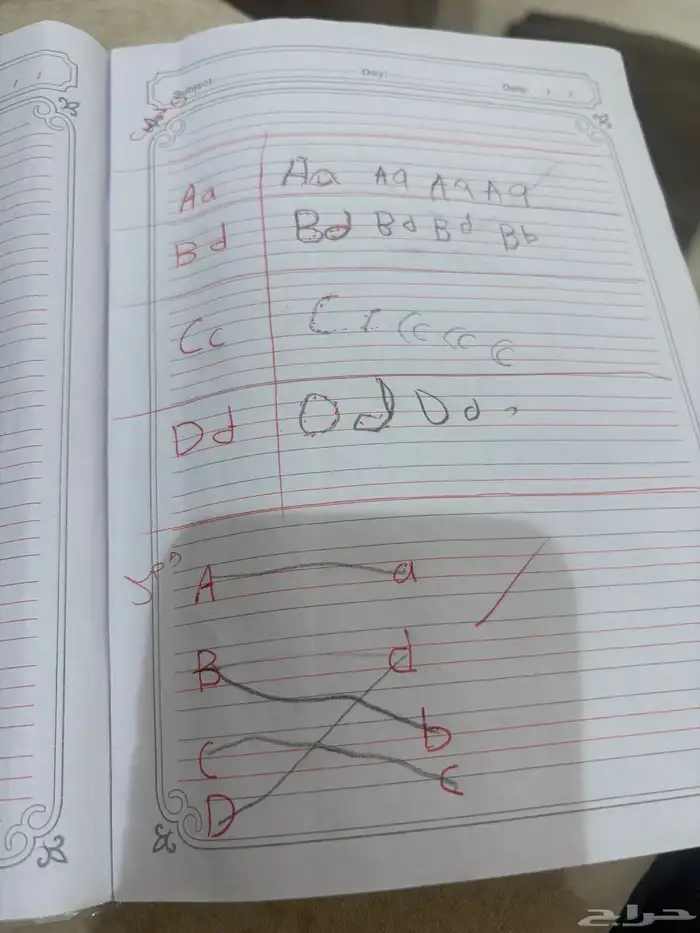 Subject: Day: Date: / /
Aa Aa Aq Aq Aq
Bd Bd Bd Bd Bb
Cc C c cc cc c
Dd Dd Dd
صل
A a
B d
b
C c
D
حراج